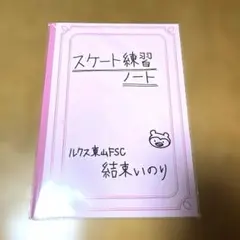 スケート練習
ノート
ルクス東山FSC
結束いのり